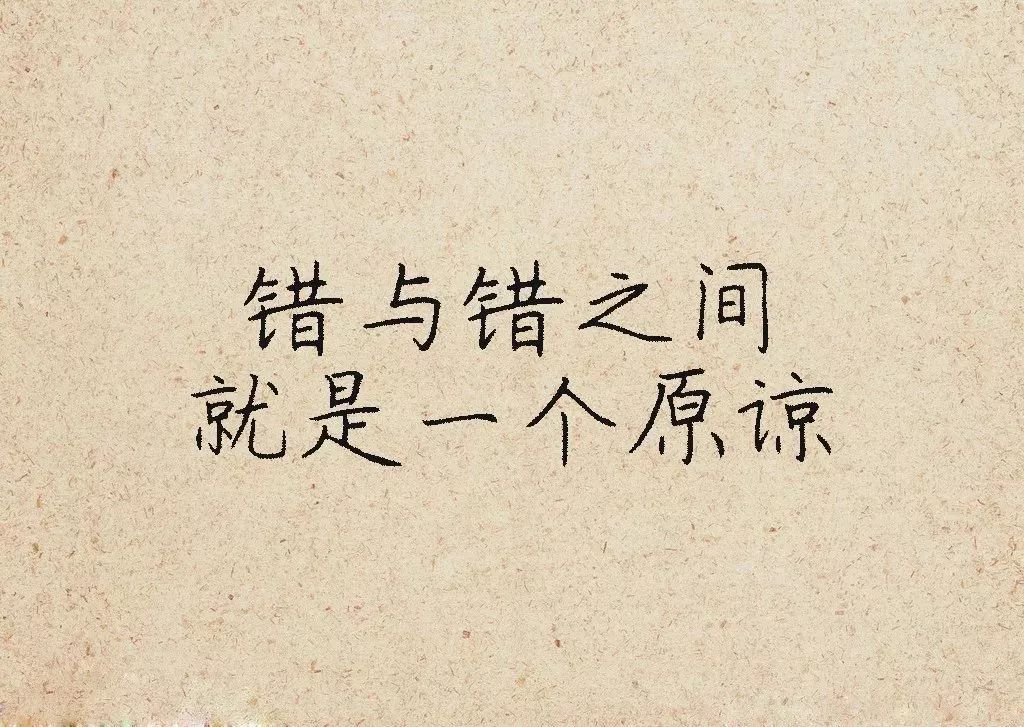 错与错之间
就是一个原谅